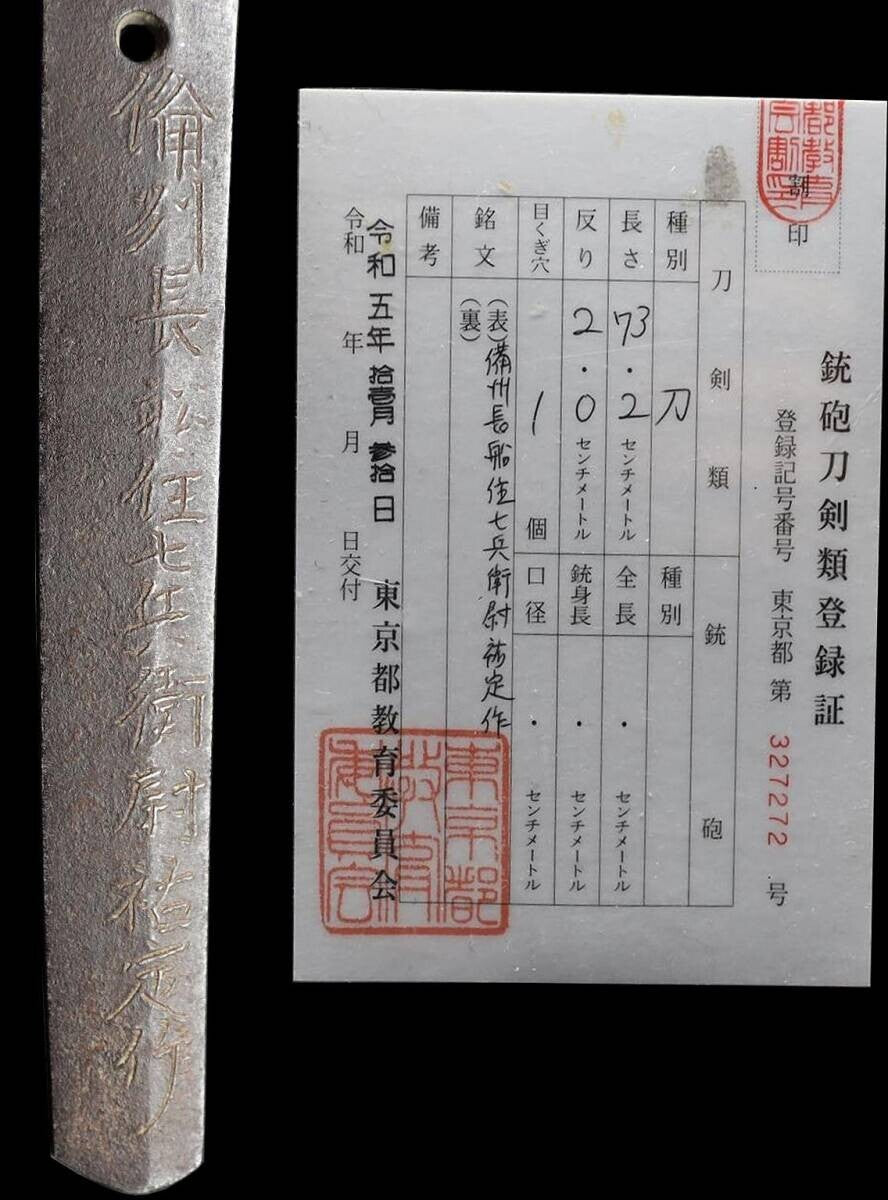 備州長舩住七兵衛尉祐定作
銃砲刀剣類登録証
割印
都教育
会割印
登録記号番号 東京都 第 327272 号
刀剣類
銃砲
種別 刀
種別
長さ 73.2 センチメートル
全長 . センチメートル
反り 2.0 センチメートル
銃身長 . センチメートル
目くぎ穴 1 個
口径 . センチメートル
銘文 (表)備州長船住七兵衛尉祐定作
(裏)
備考
令和五年拾壱月参拾日
令和 年 月 日交付
東京都教育委員会
東京都
教育
委員会